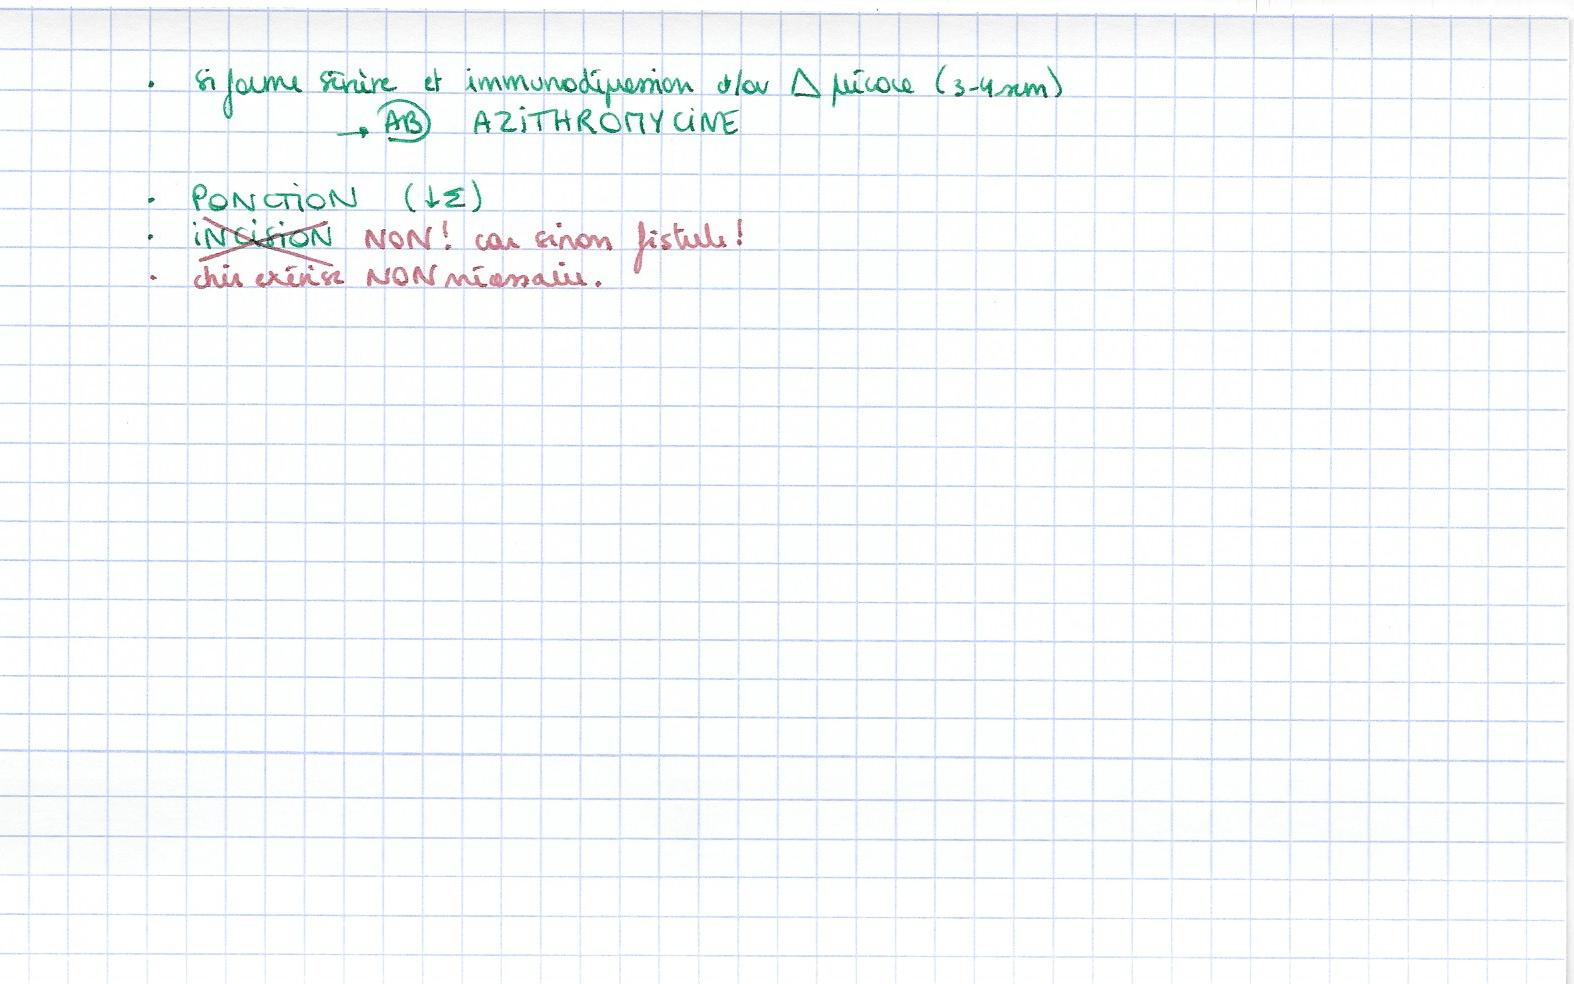 . si forme sévère et immunodépression et/ou Δ précoce (3-4 sem)
→ AB AZiTHROMYCiNE
. PONCTiON (↓Σ)
. iNCiSiON NON! car sinon fistule!
. chir exérèse NON nécessaire.